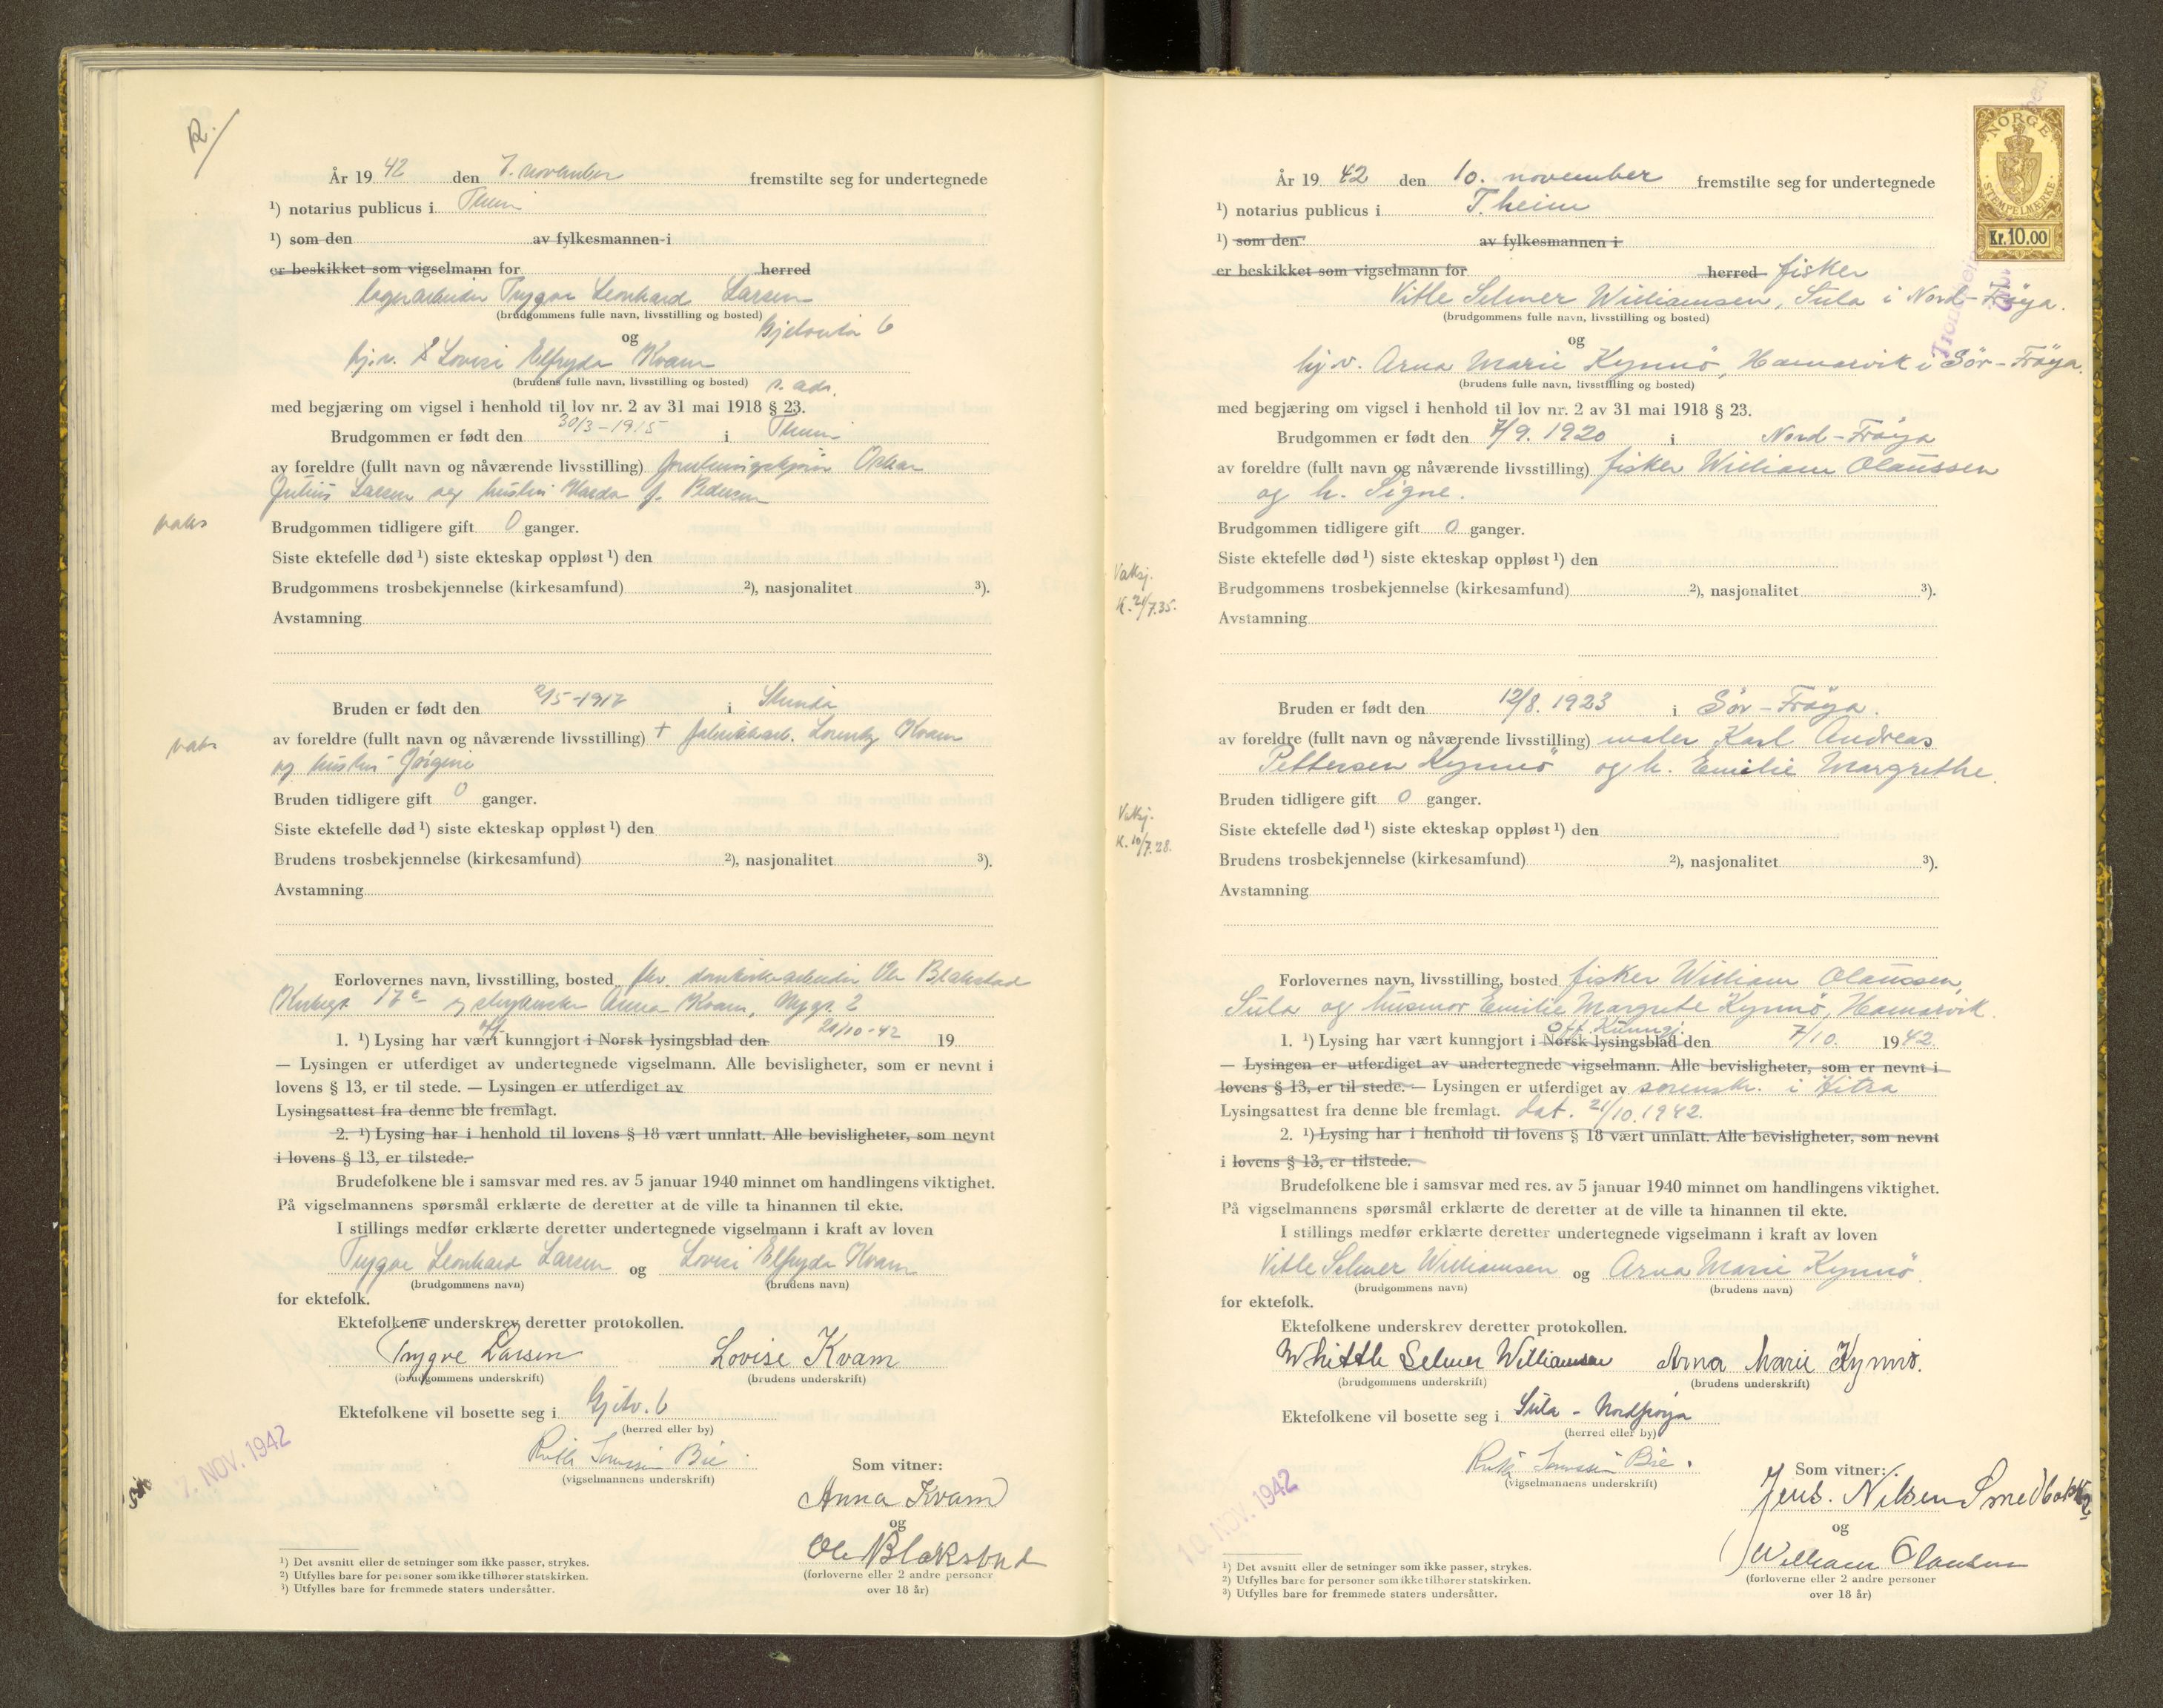 R./
År 19 42 den 7. november fremstilte seg for undertegnede
¹) notarius publicus i Thm
¹) som den av fylkesmannen i
er beskikket som vigselmann for herred
lagerarbeider Trygve Leonhard Larsen
(brudgommens fulle navn, livsstilling og bosted)
og
hj.v. Lovise Elfryda Kvam
(brudens fulle navn, livsstilling og bosted) s. adr.
med begjæring om vigsel i henhold til lov nr. 2 av 31 mai 1918 § 23.
Brudgommen er født den 30/3-1915 i
av foreldre (fullt navn og nåværende livsstilling) Oskar
Julius Larsen og hustru f. Pedersen
vaks
Brudgommen tidligere gift 0 ganger.
Siste ektefelle død ¹) siste ekteskap oppløst ¹) den
Brudgommens trosbekjennelse (kirkesamfund) ²), nasjonalitet ³).
Avstamning
Bruden er født den i Strinda
av foreldre (fullt navn og nåværende livsstilling) + fabrikkarb. Kvam
og hustru Jørgine
vaks
Bruden tidligere gift 0 ganger.
Siste ektefelle død ¹) siste ekteskap oppløst ¹) den
Brudens trosbekjennelse (kirkesamfund) ²), nasjonalitet ³).
Avstamning
Forlovernes navn, livsstilling, bosted fhv. domkirkearbeider Ole Blakstad
og Anna Kvam, 2
1. ¹) Lysing har vært off. kunngjort i Norsk lysingsblad den 21/10-42 19
— Lysingen er utferdiget av undertegnede vigselmann. Alle bevisligheter, som er nevnt i
lovens § 13, er til stede. — Lysingen er utferdiget av
Lysingsattest fra denne ble fremlagt.
2. ¹) Lysing har i henhold til lovens § 18 vært unnlatt. Alle bevisligheter, som nevnt
i lovens § 13, er tilstede.
Brudefolkene ble i samsvar med res. av 5 januar 1940 minnet om handlingens viktighet.
På vigselmannens spørsmål erklærte de deretter at de ville ta hinannen til ekte.
I stillings medfør erklærte deretter undertegnede vigselmann i kraft av loven
Trygve Leonhard Larsen og Lovise Elfryda Kvam
(brudgommens navn) (brudens navn)
for ektefolk.
Ektefolkene underskrev deretter protokollen.
Trygve Larsen Lovise Kvam
(brudgommens underskrift) (brudens underskrift)
Ektefolkene vil bosette seg i Gjelv. 6
(herred eller by)
7. NOV. 1942
Ruth Bie
(vigselmannens underskrift)
Som vitner:
Anna Kvam
og
Ole Blakstad
(forloverne eller 2 andre personer
over 18 år)
¹) Det avsnitt eller de setninger som ikke passer, strykes.
²) Utfylles bare for personer som ikke tilhører statskirken.
³) Utfylles bare for fremmede staters undersåtter.
NORGE
STEMPELMERKE
Kr. 10.00
År 19 42 den 10. november fremstilte seg for undertegnede
¹) notarius publicus i T.heim
¹) som den av fylkesmannen i
er beskikket som vigselmann for herred fisker
Vitle Selmer Williamsen, Sula i Nord-Fröya.
(brudgommens fulle navn, livsstilling og bosted)
og
hj.v. Arna Marie Kynnö, Hamarvik i Sör-Fröya.
(brudens fulle navn, livsstilling og bosted)
med begjæring om vigsel i henhold til lov nr. 2 av 31 mai 1918 § 23.
Brudgommen er født den 7/9. 1920 i Nord-Fröya
av foreldre (fullt navn og nåværende livsstilling) fisker William Olaussen
og h. Signe.
Brudgommen tidligere gift 0 ganger.
Siste ektefelle død ¹) siste ekteskap oppløst ¹) den
Vaksj.
K. 21/7.35.
Brudgommens trosbekjennelse (kirkesamfund) ²), nasjonalitet ³).
Avstamning
Bruden er født den 12/8. 1923 i Sör-Fröya.
av foreldre (fullt navn og nåværende livsstilling) maler Karl Andreas
Pettersen Kynnö og h. Emilie Margrethe.
Bruden tidligere gift 0 ganger.
Vaksj.
K. 10/7.28.
Siste ektefelle død ¹) siste ekteskap oppløst ¹) den
Brudens trosbekjennelse (kirkesamfund) ²), nasjonalitet ³).
Avstamning
Forlovernes navn, livsstilling, bosted fisker William Olaussen,
Sula og husmor Emilie Margrete Kynnö, Hamarvik.
1. ¹) Lysing har vært kunngjort i Norsk lysingsblad Off. Kunngj. den 7/10. 1942.
— Lysingen er utferdiget av undertegnede vigselmann. Alle bevisligheter, som er nevnt i
lovens § 13, er til stede. — Lysingen er utferdiget av sorenskr. i Hitra
Lysingsattest fra denne ble fremlagt. dat. 21/10. 1942.
2. ¹) Lysing har i henhold til lovens § 18 vært unnlatt. Alle bevisligheter, som nevnt
i lovens § 13, er tilstede.
Brudefolkene ble i samsvar med res. av 5 januar 1940 minnet om handlingens viktighet.
På vigselmannens spørsmål erklærte de deretter at de ville ta hinannen til ekte.
I stillings medfør erklærte deretter undertegnede vigselmann i kraft av loven
Vitle Selmer Williamsen og Arna Marie Kynnö.
(brudgommens navn) (brudens navn)
for ektefolk.
Ektefolkene underskrev deretter protokollen.
Whittle Selmer Williamsen Arna Marie Kynnö.
(brudgommens underskrift) (brudens underskrift)
Ektefolkene vil bosette seg i Sula - Nordfröya
(herred eller by)
10. NOV. 1942
Ruth Bie.
(vigselmannens underskrift)
Som vitner:
Jens. Nilsen Smedbakk
og
William Olausen
(forloverne eller 2 andre personer
over 18 år)
¹) Det avsnitt eller de setninger som ikke passer, strykes.
²) Utfylles bare for personer som ikke tilhører statskirken.
³) Utfylles bare for fremmede staters undersåtter.